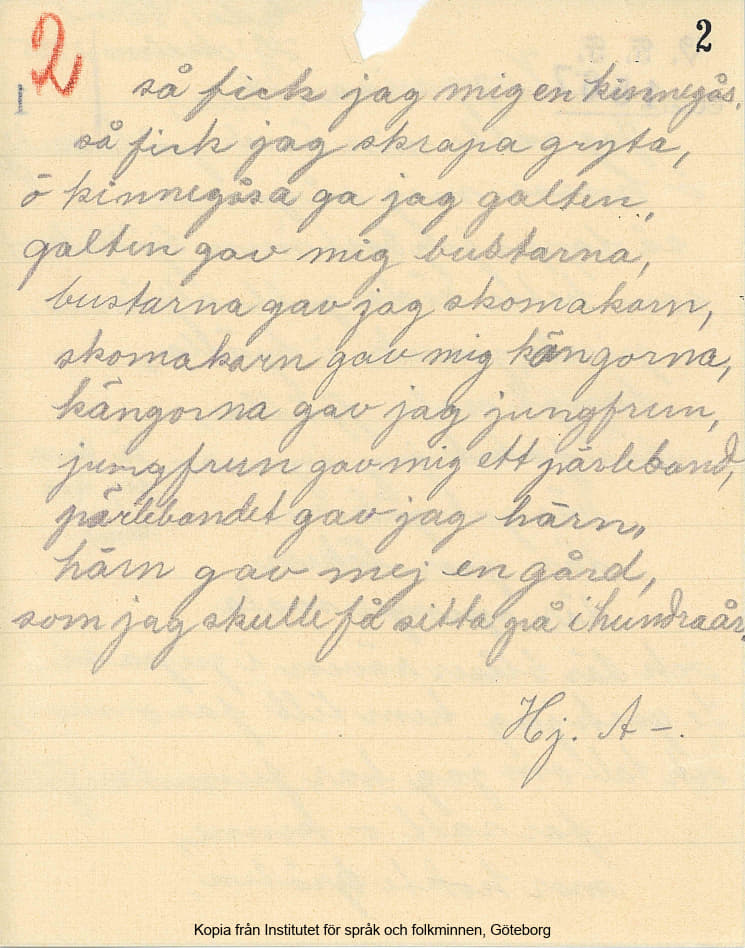 2
2
så fick jag mig en kinnegås,
så fick jag skrapa gryta,
ö kinnegåsa ga jag galten,
galten gav mig bustarna,
bustarna gav jag skomakarn,
skomakarn gav mig kängorna,
kängorna gav jag jungfrun,
jungfrun gav mig ett pärleband,
pärlebandet gav jag härn,
härn gav mej en gård,
som jag skulle få sitta på i hundra år.
Hj. A –.
Kopia från Institutet för språk och folkminnen, Göteborg